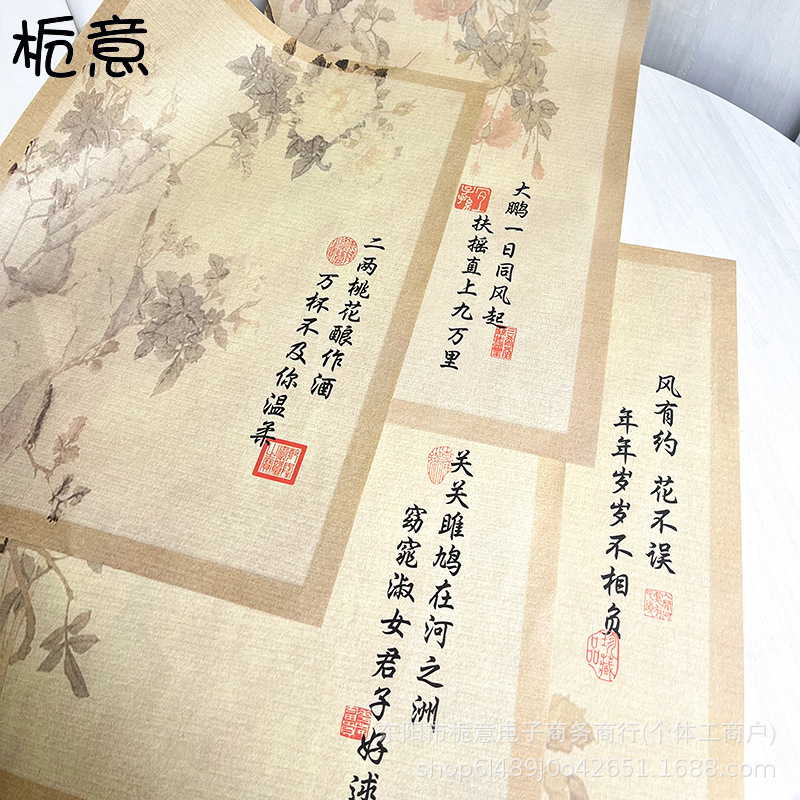 栀意
大鹏一日同风起
扶摇直上九万里
二两桃花酿作酒
万杯不及你温柔
风有约 花不误
年年岁岁不相负
珍藏品
关关雎鸠在河之洲
窈窕淑女君子好逑
东阳市栀意电子商务商行(个体工商户)
shop6l489j0o42651.1688.com